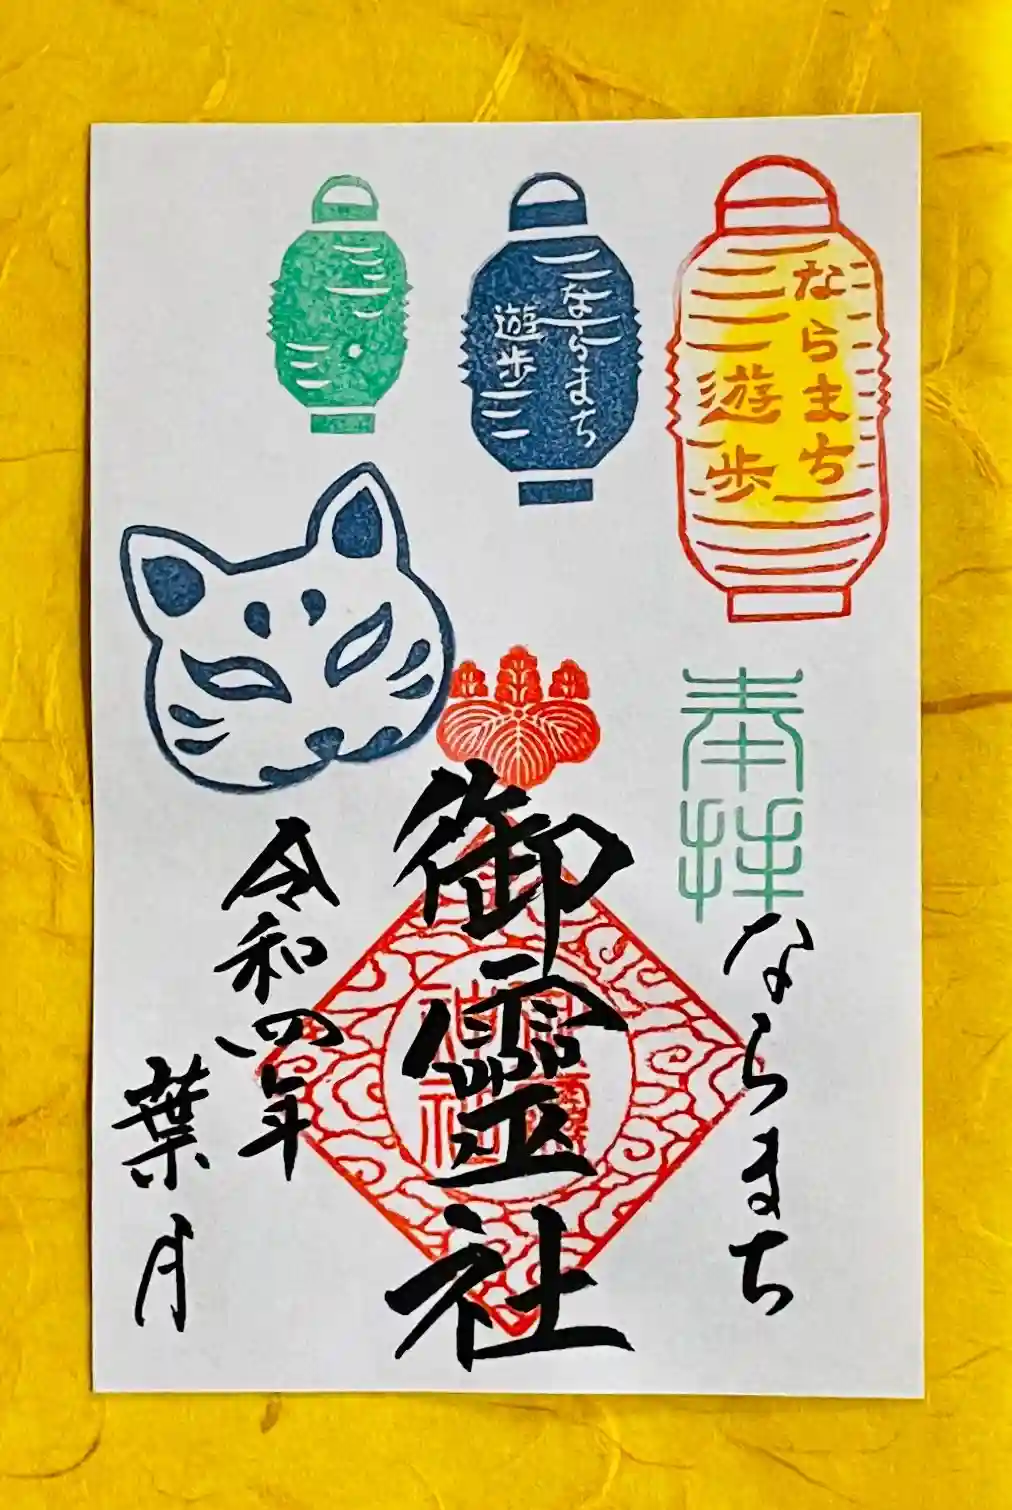 ならまち
遊歩
ならまち
遊歩
奉拝
ならまち
御靈社
令和四年
葉月